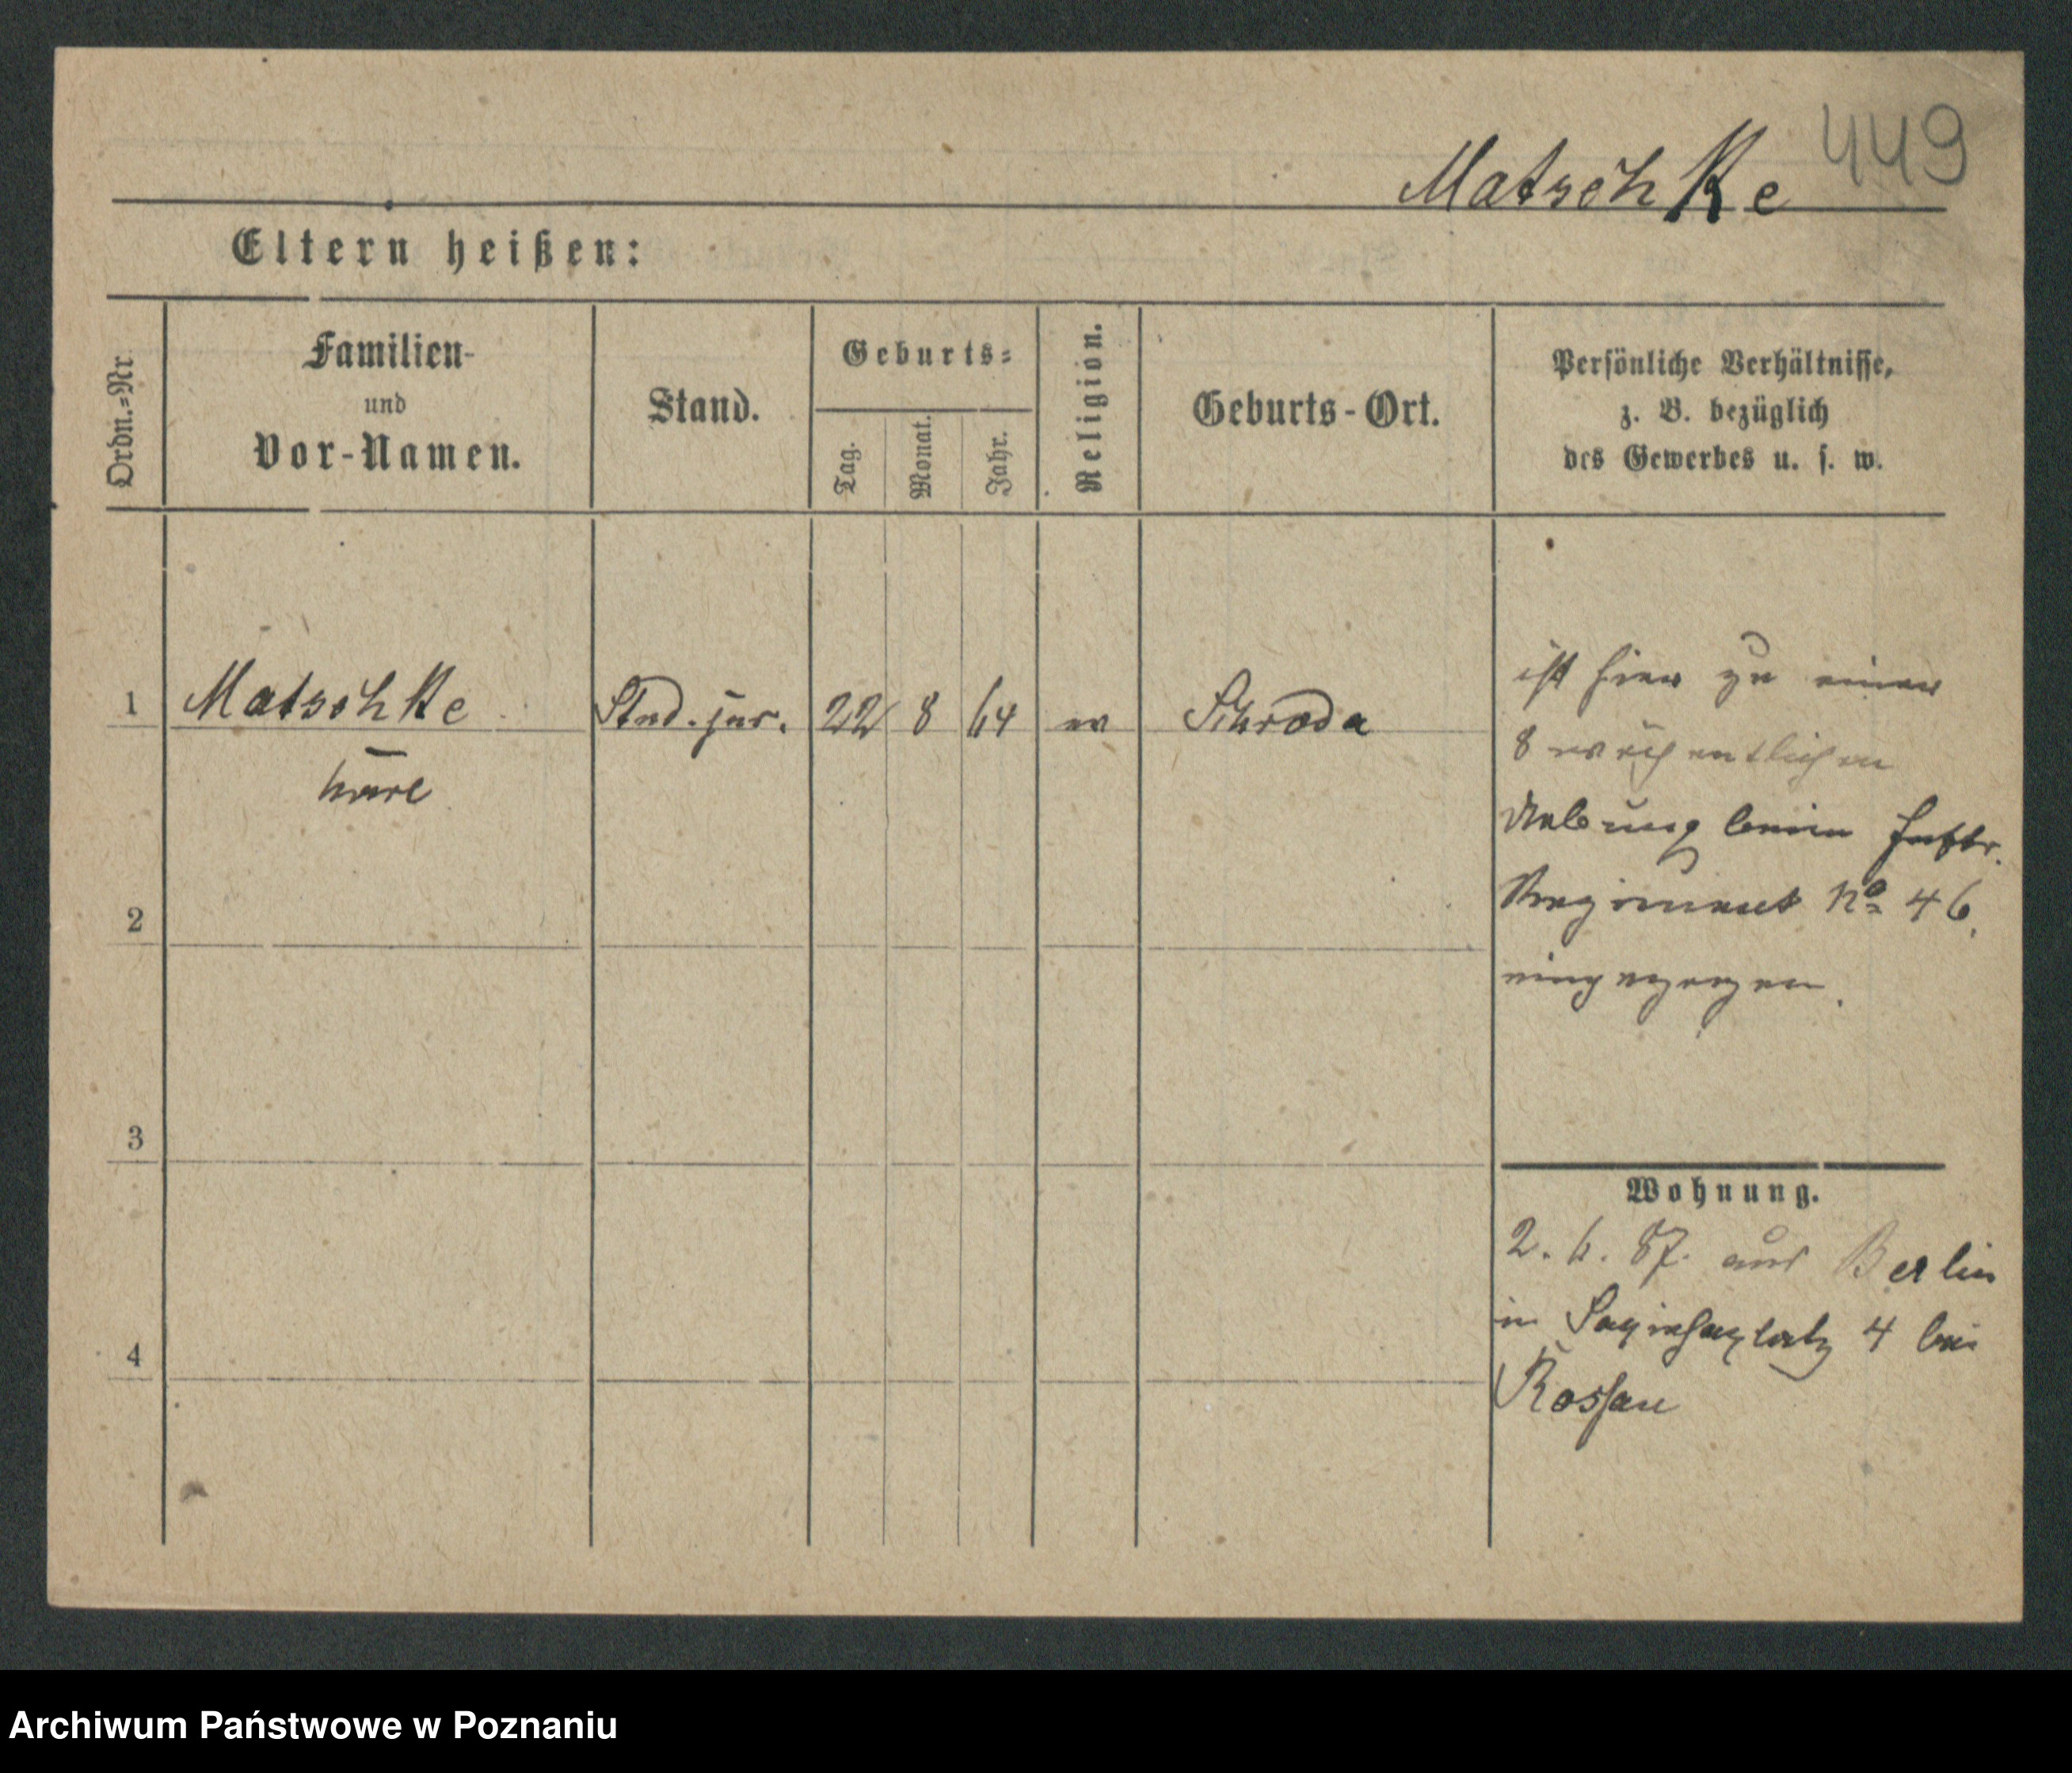 449
Matschke
Eltern heißen:
Ordn.=Nr.
Familien-
und
Vor-Namen.
Stand.
Geburts=
Tag.
Monat.
Jahr.
Religion.
Geburts-Ort.
Persönliche Verhältnisse,
z. B. bezüglich
des Gewerbes u. s. w.
1
Matschke
Karl
Stud. jur.
22
8
64
ev
Schroda
ist hier zu einer
8 wöchentlichen
Uebung beim Inftr.
Regiment No 46.
eingezogen.
2
3
4
Wohnung.
2. 6. 87. aus Berlin
in Sapiehaplatz 4 bei
Rossau
Archiwum Państwowe w Poznaniu